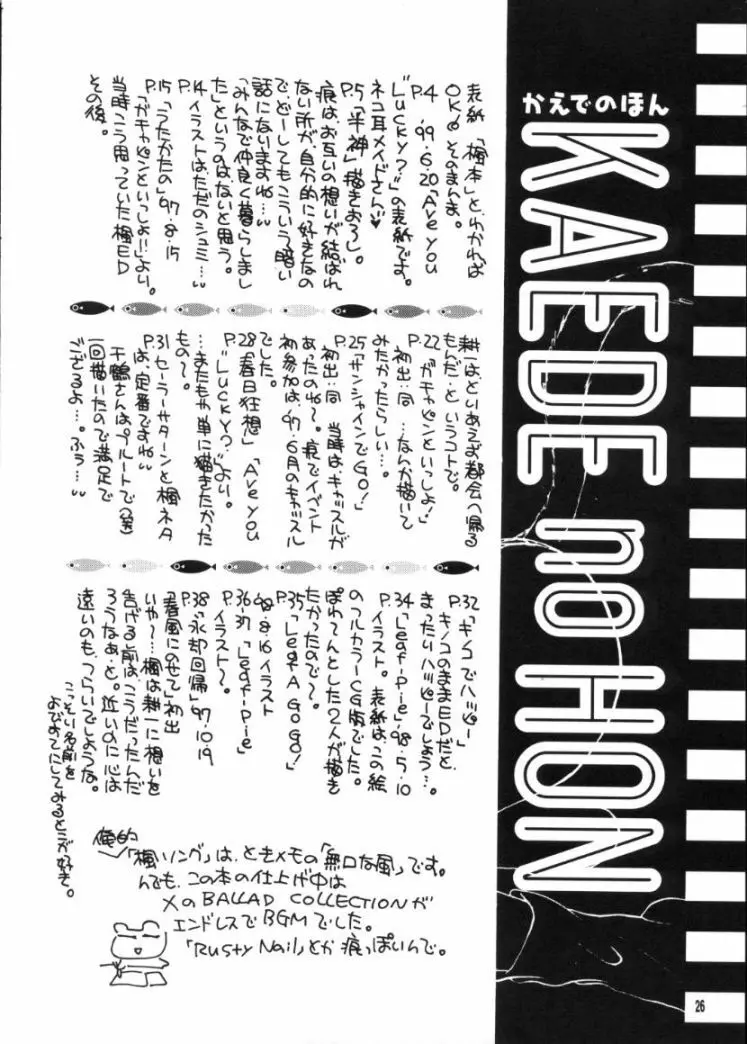 かえでのほん
KAEDE no HON
表紙 「楓本」と、わかれば
OK。そのまんま。
P.4 '99.6.20「Ave you
"Lucky?"」の表紙です。
ネコ耳メイドさん♥
P.5「半神」描きおろし。
痕は、お互いの想いが結ばれ
ない所が、自分的に好きなの
で、どーしてもこういう暗い
話になりますね…。
「みんなで仲良く暮らしまし
た」というのはないと思う。
P.14 イラストはただのシュミ…。
P.15「うたかたの」'97.8.15
「ガチャピンといっしょ!!」より。
当時こう思っていた楓ED
その後。
耕一はとりあえず都会へ帰る
もんだ、というコトで。
P.22「ガチャピンといっしょ!」
初出:同 …なんか描いて
みたかったらしい…。
P.25「サンシャインでGO!」
初出:同 当時は、キャッスルが
あったのね〜。痕でイベント
初参加は、'97.6月のキャッスル
でした。
P.28「春日狂想」「Ave you
"Lucky?"」より。
…またもや単に描きたかった
もの〜。
P.31 セーラーサターンと楓ネタ
は、定番ですね。
千鶴さんはプルートで(笑)
一回描いたので満足で
ござるよ…。ふう…。
P.32「キノコでハッピー」
キノコのままEDだと、
まったりハッピーでしょう…。
P.34「Leaf-Pie」'98.5.10
イラスト。表紙は、この絵
のフルカラーCG版でした。
ぽわてんとした2人が描き
たかったので〜。
P.35「Leaf A GoGo!」
'98.8.16 イラスト
P.36-37「Leaf-Pie」
イラスト〜。
P.38「永却回帰」'97.10.19
「春風にのせて」初出
いや〜…楓は耕一に想いを
告げる前はこうだったんだ
ろうなぁ、と。近いのに心は
遠いのも、つらいでしょうな。
こっそり名前を
おでめてにしてみるとこが好き。
俺的
「楓ソング」は、ときメモの「無口な風」です。
んでも、この本の仕上げ中は
XのBALLAD COLLECTIONが
エンドレスでBGMでした。
「Rusty Nail」とか痕っぽいんで。
26